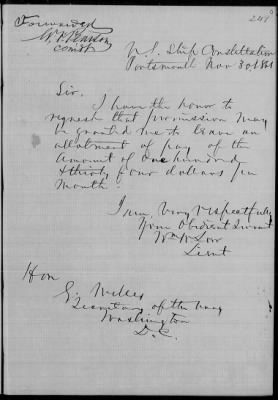 Forwarded
Comdt
249
U.S. Ship Constellation
Portsmouth Nov 30, 1861
Sir.
I have the honor to
request that permission may
be granted me to leave an
allotment of pay of the
amount of One hundred
& thirty four dollars per
month.
I am, Very respectfully
Your Obedient Servant
Lieut
Hon
G. Welles
Secretary of the Navy
Washington
D.C.